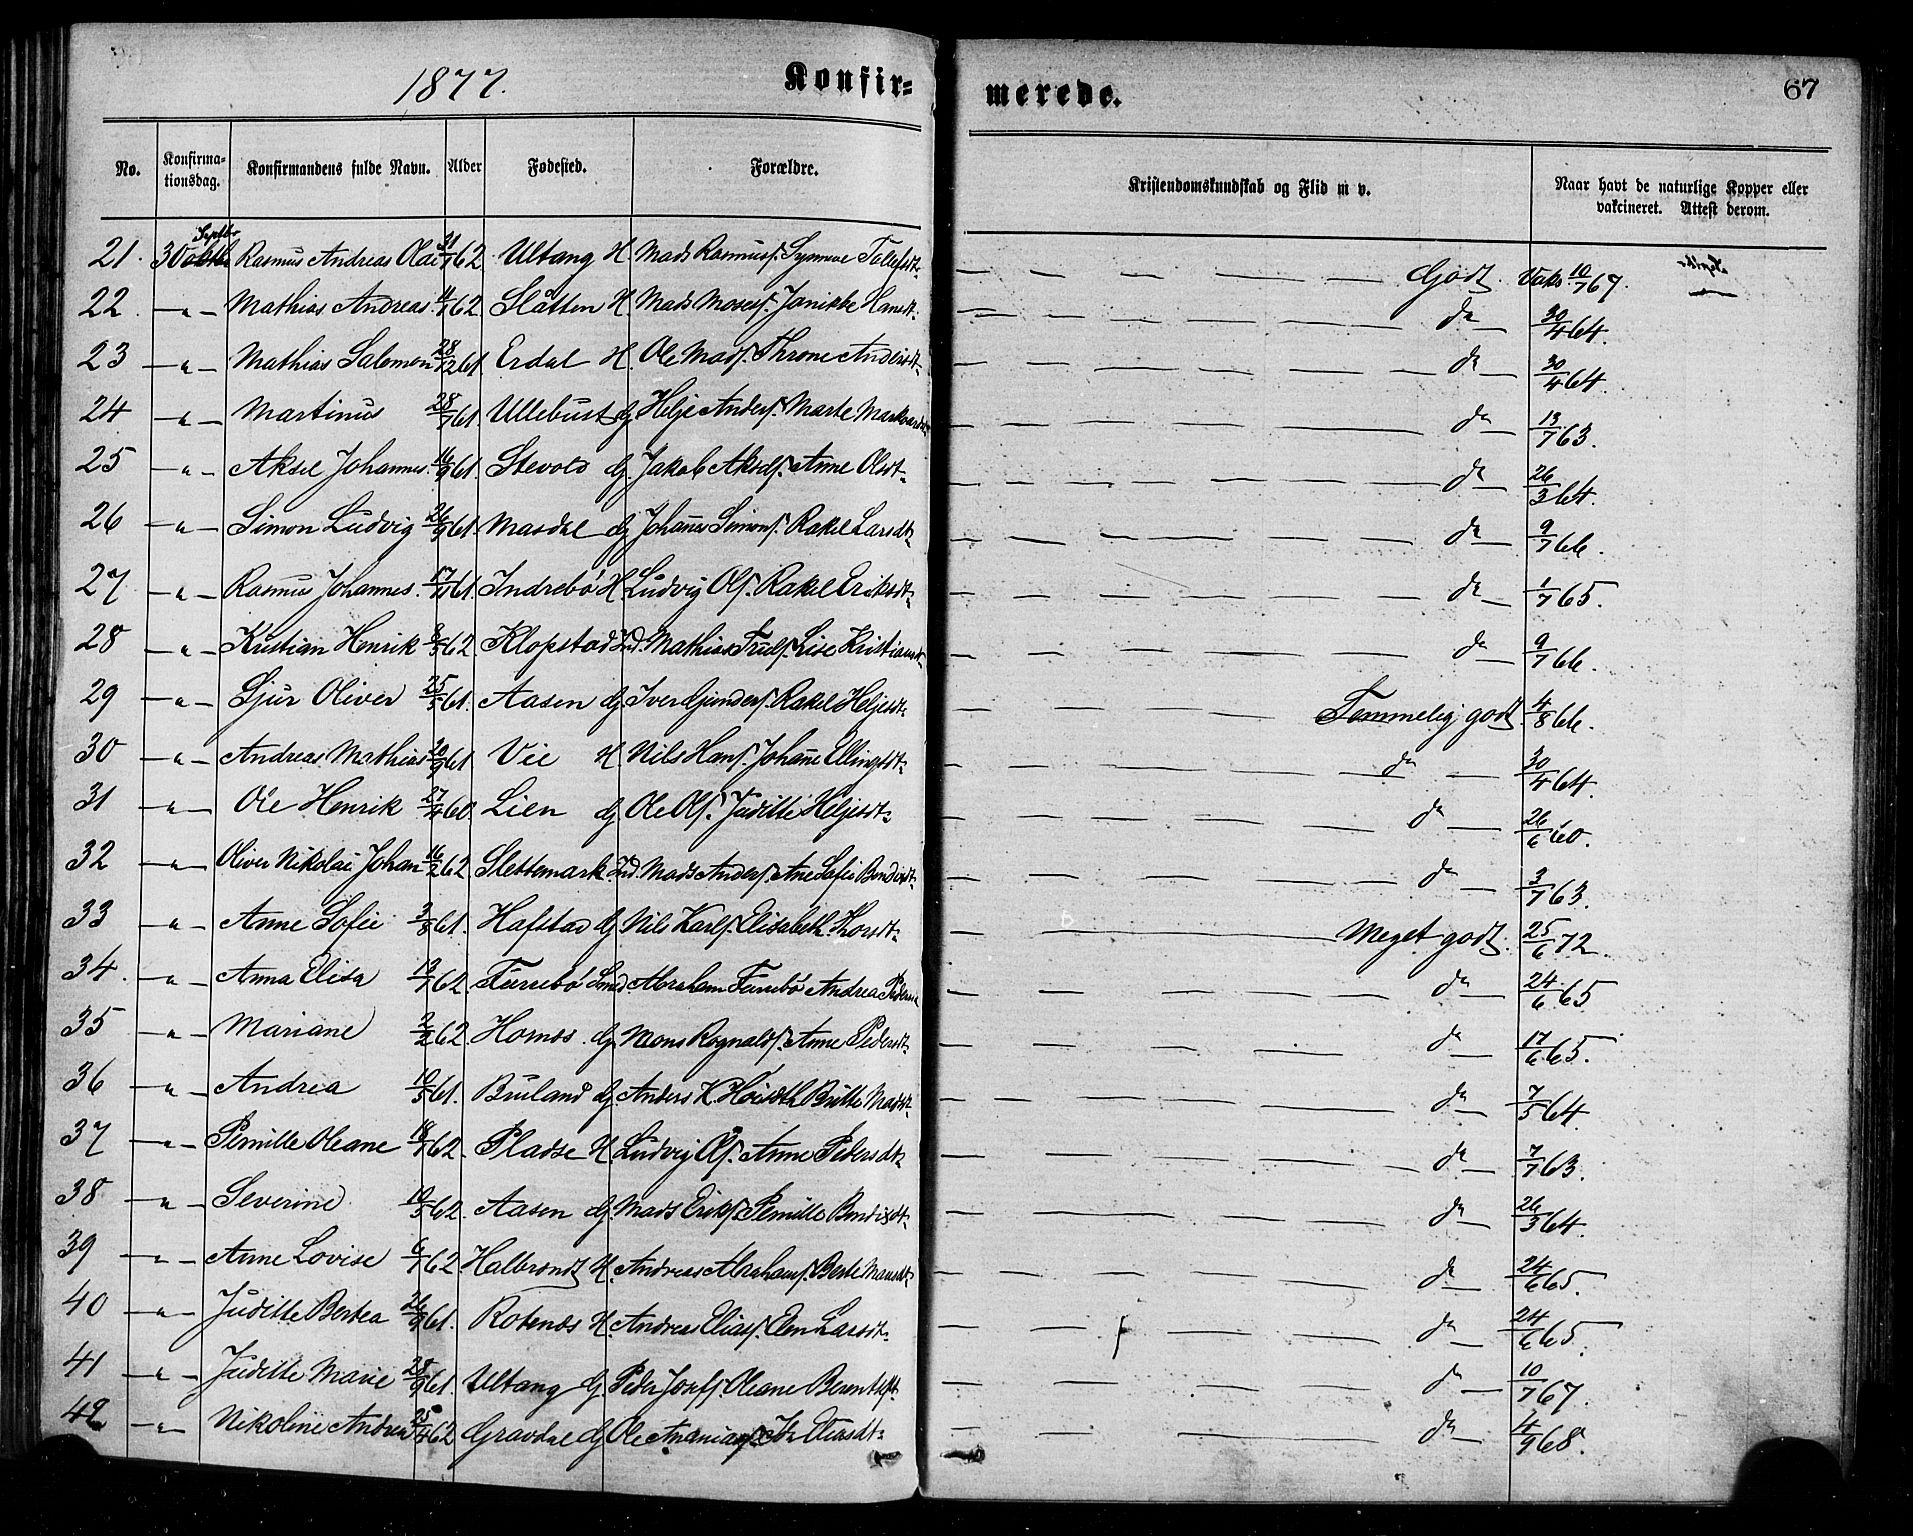 1877. Konfir- merede. 67
No. Konfirmationsdag. Konfirmandens fulde Navn. Alder Fødested. Forældre. Kristendomskundskab og Flid m v. Naar havt de naturlige Kopper eller vakcineret. Attest derom.
Septbr
21. 30 Rasmus Andreas Olai 31/7 62 Ultang H. Mads Rasmusf. Synneve Tollefsdt. — — — — — Godt. Vaks. 10/7 67.
22. —"— Mathias Andreas 62. Slåtten H. Mads Mosesf. Janikke Hansdt. — — — — — do — 30/4 64.
23 —"— Mathias Salomon 28/12 61. Erdal H. Ole Madsf. Throne Andersdt. — — — — — do — 30/4 64.
24 —"— Martinus 28/7 61. Ullebust Gj. Helje Andersf. Marte — — — — — do — 13/7 63.
25 —"— Aksel Johannes. 16/9 61. Stevold Gj. Jakob Akself. Anne Olsdt. — — — — — do — 26/3 64.
26 —"— Simon Ludvig 26/9 61. Masdal Gj. Johanes Simonsf. Rakel Larsdt. — — — — — do — 9/7 66.
27 —"— Rasmus Johannes. 61. Indrebø H. Ludvig Olsf. Rakel Eriksdt. — — — — — do — 1/7 65.
28 —"— Kristian Henrik 62 Klopstad Ind. Mathias Lise Kristiansdt. — — — — — do — 9/7 66.
29 —"— Sjur Oliver 25/5 61. Aasen Gj. Iver Gjundersf. Rakel Heljesdt. — — — — — Temmelig godt 4/8 66.
30 —"— Andreas Mathias 61 Vie H. Nils Hansf. Johane Ellingsdt. — — — — do — 30/4 64.
31 —"— Ole Henrik 27/4 60. Lien Gj. Ole Olsf. Juditte Heljesdt. — — — — do — 26/6 60.
32 —"— Oliver Nikolai Johan 16/2 62. Slettemark Ind. Mads Andersf. Ane Sofie Bendixdt. — — — — do — 3/7 63.
33 —"— Anne Sofie 3/8 61. Hafstad Gj. Nils Karlsf. Elisabeth Thorsdt. — — — Meget godt. 25/6 72.
34. —"— Anna Elisa 13/7 62. Furrebø Abraham Furrebø Andrea — — — — do — 24/6 65
35 —"— Mariane 2/2 62. Hornes. Gj. Mons Rognaldsf. Anne Pedersdt. — — — — do — 17/6 65.
36 —"— Andrea 10/5 61. Bruland Gj. Anders K. Britte Madsdt. — — — — do — 7/5 64.
37 —"— Pernille Oleane 18/7 62. Pladse H. Ludvig Olsf. Anne Pedersdt. — — — — do — 7/7 63.
38 —"— Severine 10/5 62. Aasen Gj. Mads Eriksf. Pernille Bendixdt. — — — — do — 26/3 64.
39 —"— Anne Lovise 6/7 62. Halbrendt H. Andreas Abrahamsf. Berte Monsdt. — — — — do — 24/6 65.
40 —"— Juditte Bertea 26/9 61. Rotenes H. Andreas Eliasf. Elen Larsdt. — — — — do — 24/6 65.
41 —"— Juditte Marie 28/9 61. Ultang Gj. Peder Josefsf. Oleane Berentsdt. — — — — do — 10/7 67.
42 —"— Nikoline Andrea 25/4 62 Gravdal Gj. Ole Ananiasf. — — — — do — 4/9 68.